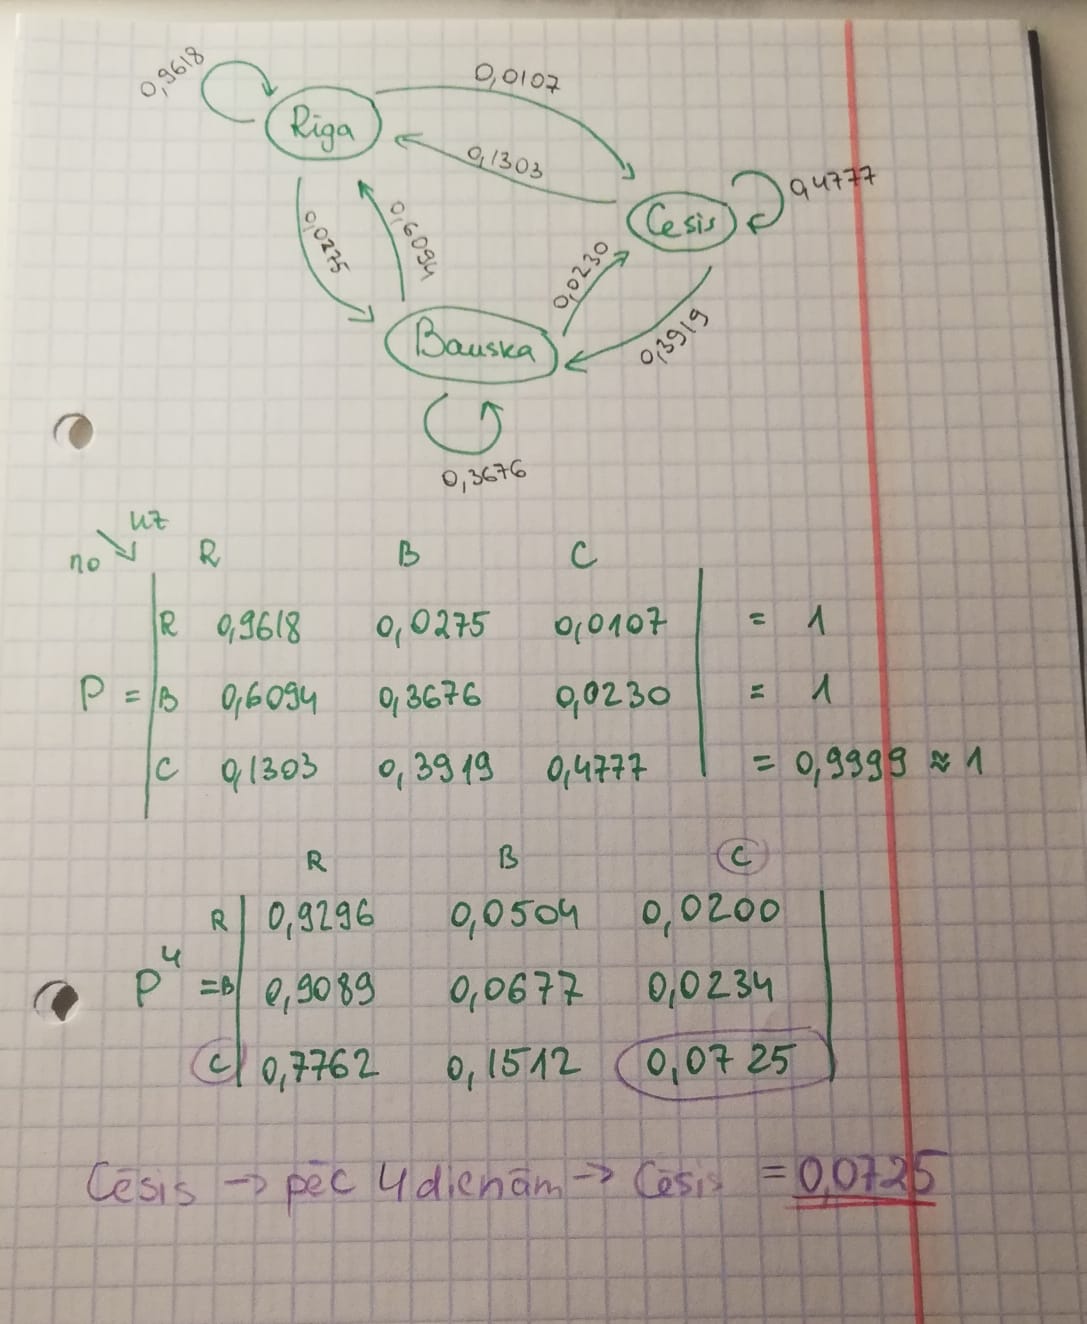 0,9618
0,0107
Rīga
0,1303
0,4777
Cēsis
0,0275
0,6094
0,0230
Bauska
0,3919
0,3676
uz
no R B C
R 0,9618 0,0275 0,0107 = 1
P = B 0,6094 0,3676 0,0230 = 1
C 0,1303 0,3919 0,4777 = 0,9999 ≈ 1
R B C
R 0,9296 0,0504 0,0200
P⁴ = B 0,9089 0,0677 0,0234
C 0,7762 0,1512 0,0725
Cēsis → pēc 4 dienām → Cēsis = 0,0725